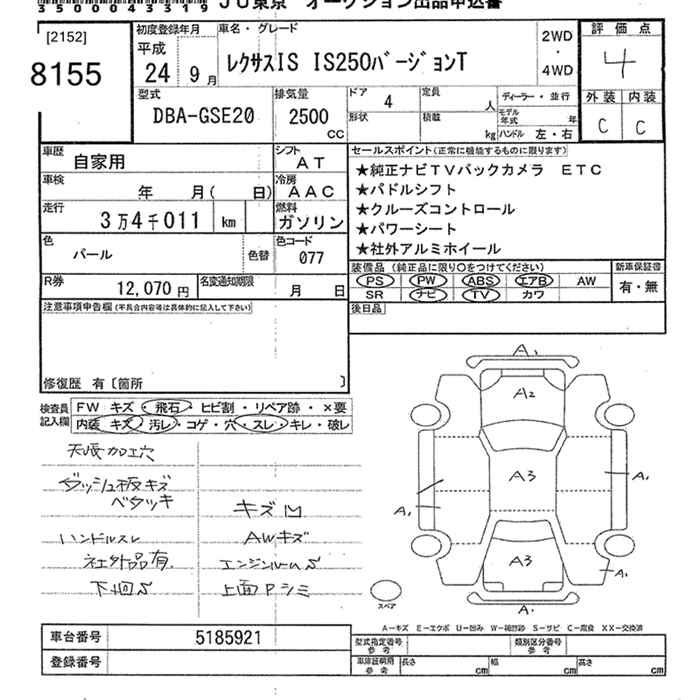 350004319 JU東京 オークション出品申込書
[2152]
8155
初度登録年月
平成
24 9月
車名・グレード
レクサスIS IS250バージョンT
2WD
・
4WD
評価点
4
外装 内装
C C
型式
DBA-GSE20
排気量
2500
CC
ドア
4
形状
定員
人
積載
kg
ディーラー・並行
モデル年式
年
ハンドル 左・右
車歴
自家用
シフト
AT
車検
年 月( 日)
冷房
AAC
走行
3万4千011 km
燃料
ガソリン
色
パール
色替
色コード
077
R券
12,070円
名変通知期限
月 日
セールスポイント(正常に機能するものに限ります)
★純正ナビTVバックカメラ ETC
★パドルシフト
★クルーズコントロール
★パワーシート
★社外アルミホイール
装備品(純正品に限り○をつけてください)
PS PW ABS エアB AW
SR ナビ TV カワ
新車保証書
有・無
後日品
注意事項申告欄(不具合内容等は具体的に記入して下さい)
修復歴 有〔箇所 〕
検査員
記入欄
FW キズ・飛石・ヒビ割・リペア跡・×要
内装 キズ・汚レ・コゲ・穴・スレ・キレ・破レ
天張加工穴
ダッシュ板キズ
ベタツキ
キズ凹
ハンドルスレ
AWキズ
社外品有
エンジンルームS
下廻S
上面Pシミ
A1
A2
A3
A1
A1
A3
A1
A1
スペア
A-キズ E-エクボ U-凹み W-補修跡 S-サビ C-腐食 XX-交換済
車台番号
5185921
登録番号
型式指定番号
参考
類別区分番号
参考
車庫証明用
参考
長さ cm
幅 cm
高さ cm